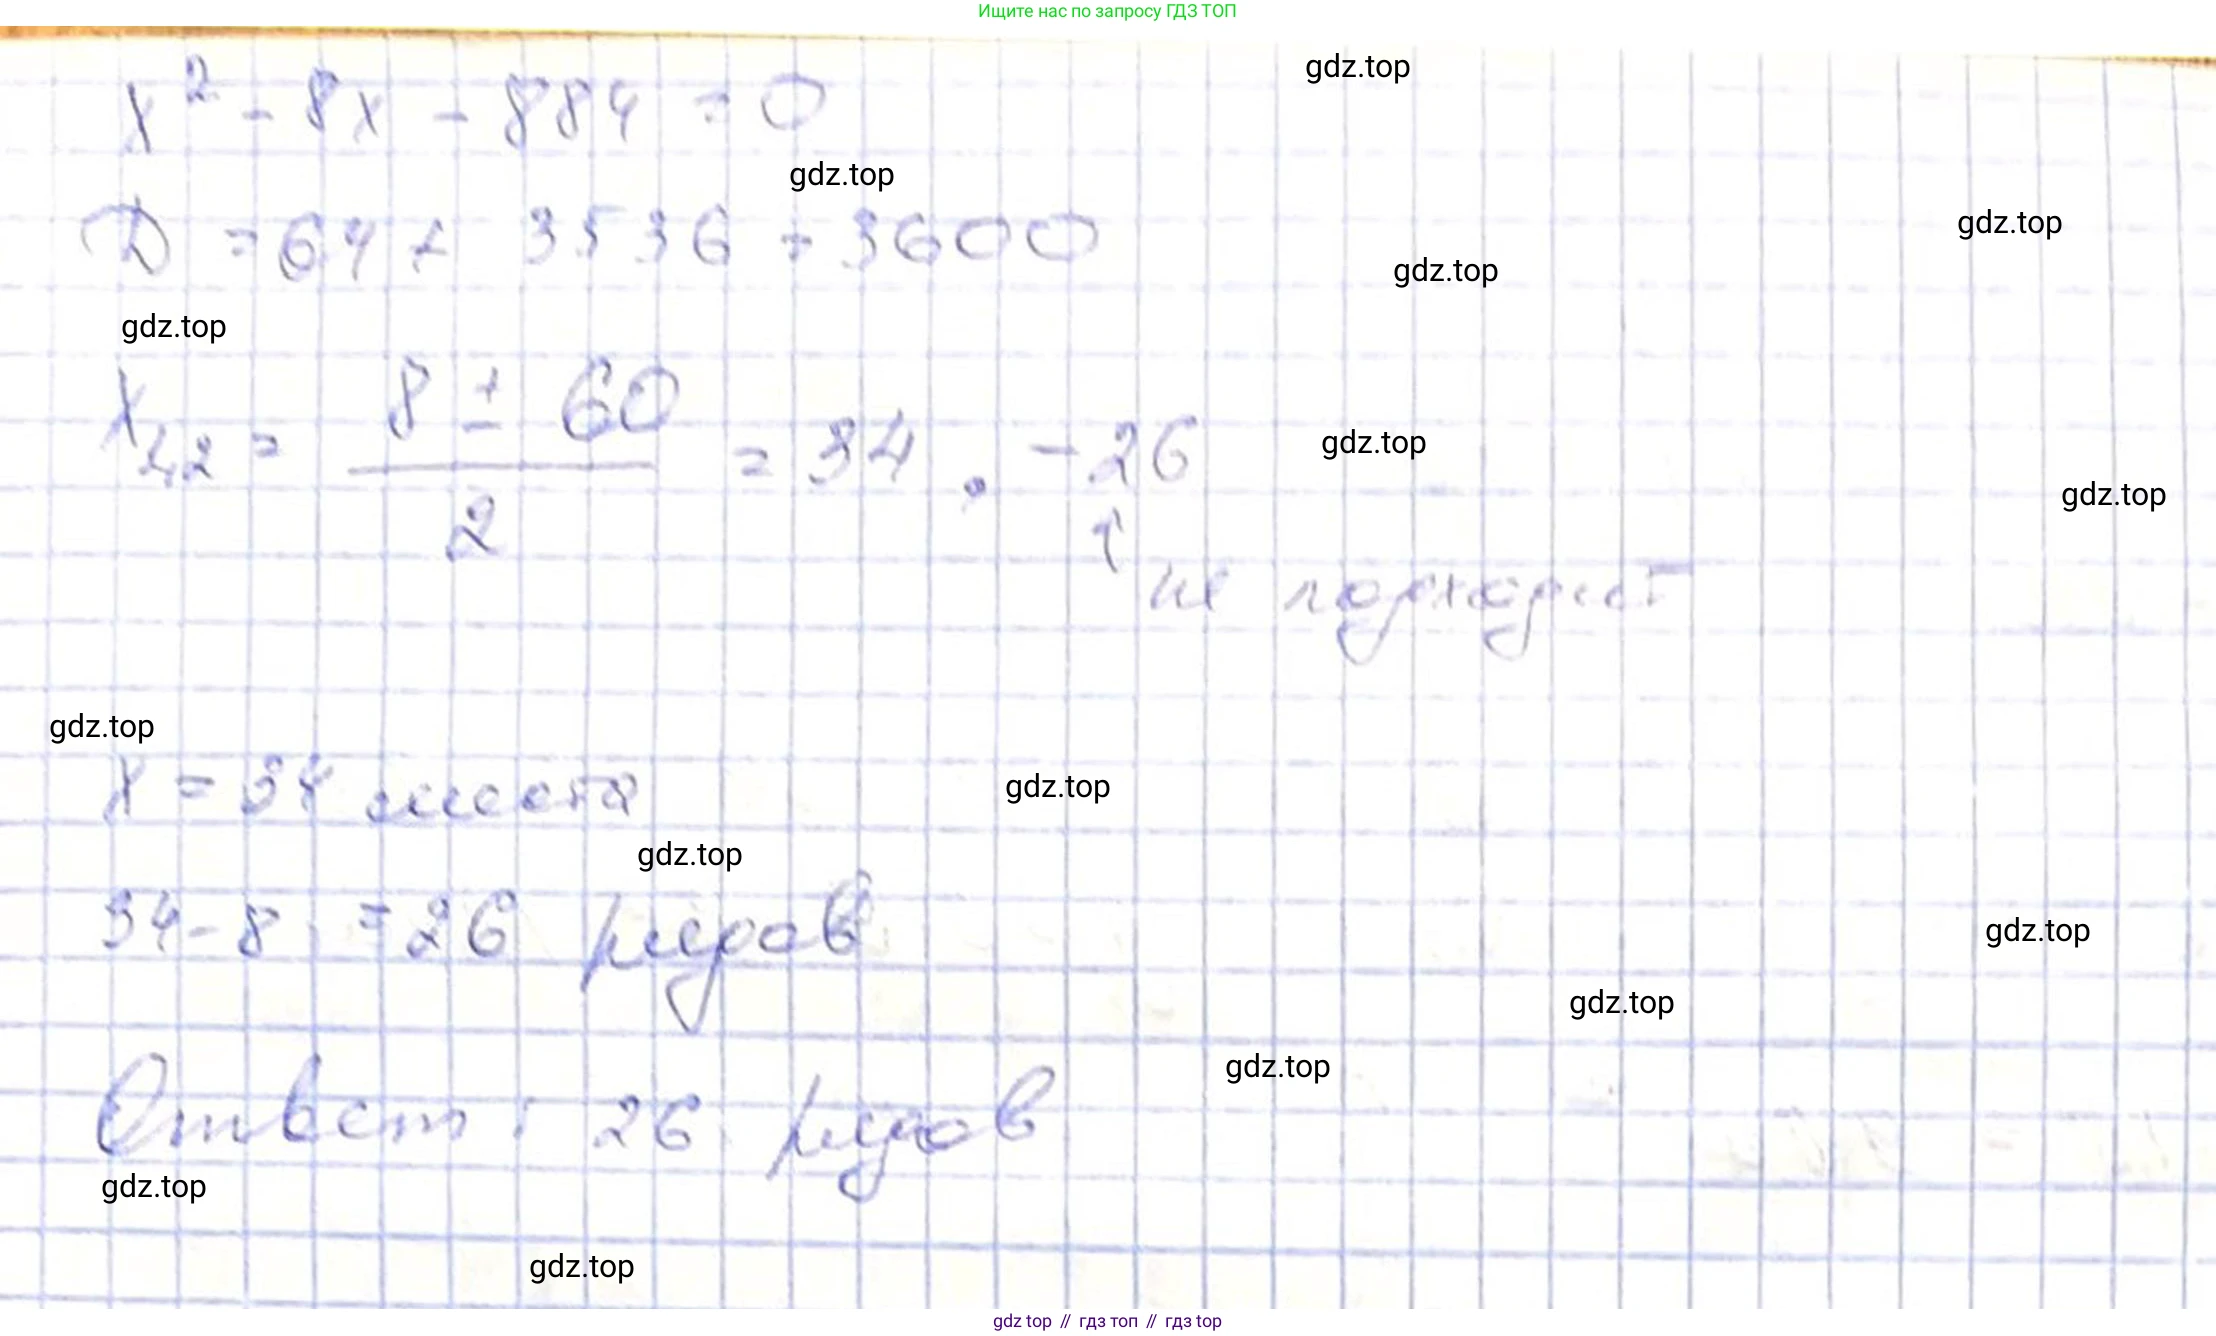 Ищите нас по запросу ГДЗ ТОП
x² - 8x - 884 = 0
gdz.top
gdz.top
D = 64 + 3536 = 3600
gdz.top
gdz.top
gdz.top
x₁,₂ = (8 ± 60)/2 = 34, -26
gdz.top
gdz.top
↑ не подходит
gdz.top
x = 34 места
gdz.top
gdz.top
34 - 8 = 26 рядов
gdz.top
gdz.top
gdz.top
Ответ: 26 рядов
gdz.top
gdz.top
gdz top // гдз топ // гдз top